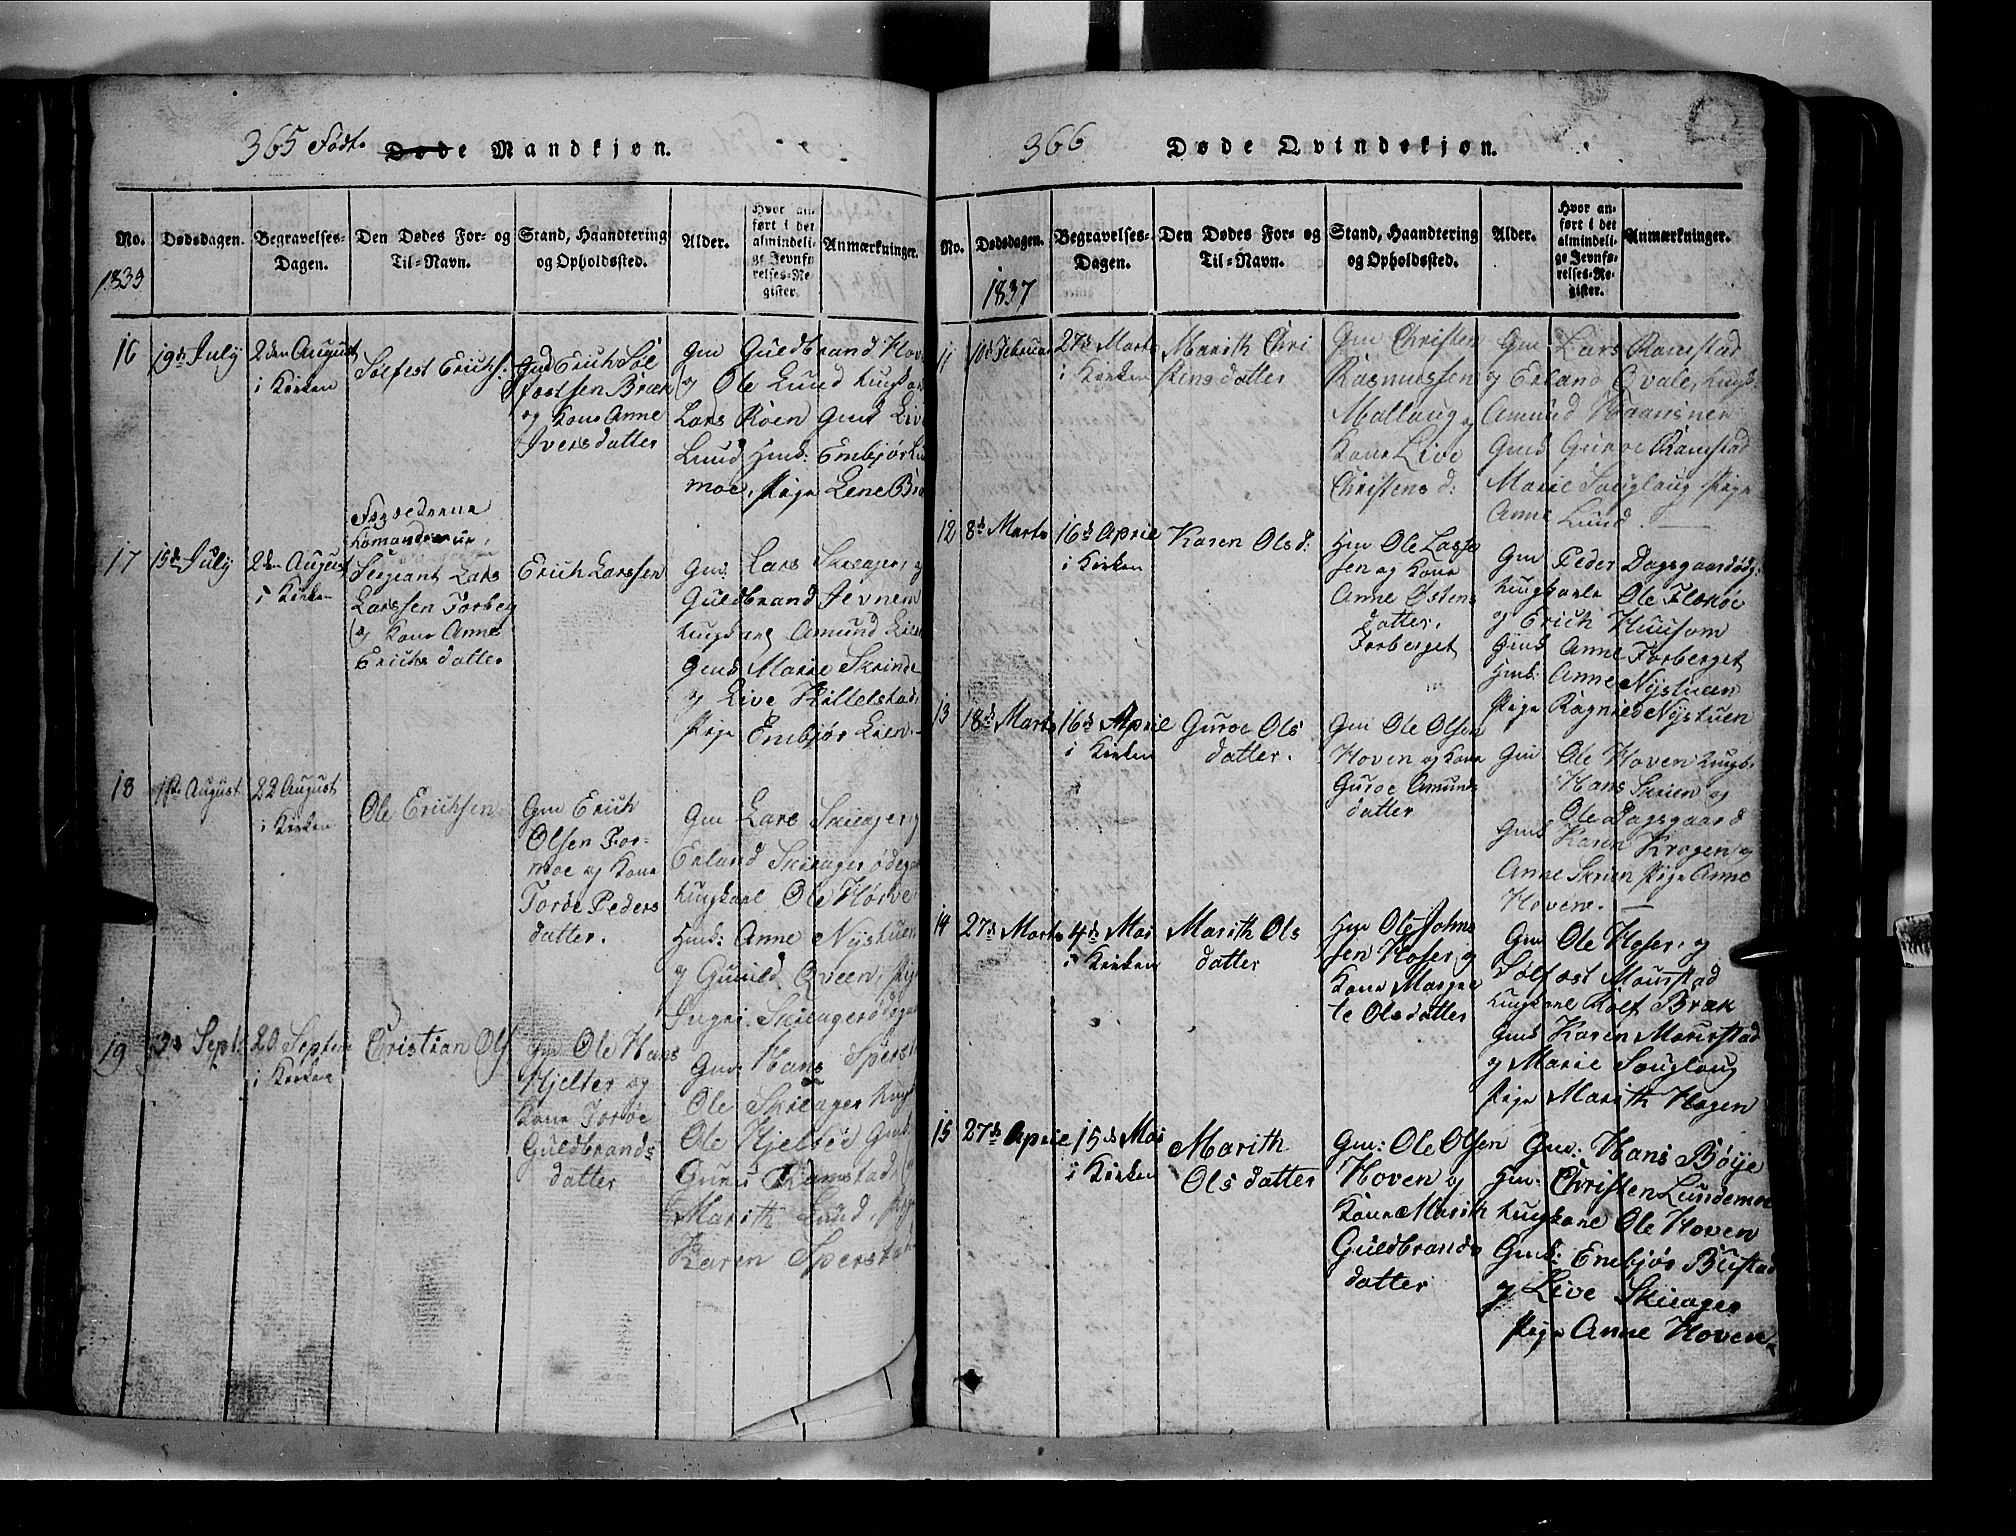 365 Födt.
Døde Mandkjøn.
No. Dødsdagen. Begravelses-Dagen. Den Dødes For- og Til-Navn. Stand, Haandtering og Opholdssted. Alder. Hvor anført i det almindelige Jevnførelses-Register. Anmærkninger.
1839
16 19de July 2den August i Kirken
Sølfest Erichs.
Gmd Erich Søl
festsen Bræk
og Kone Anne
Iversdatter
Gm Guldbrand Hov
og Ole Lund Ungkar
Lars Röen Gmds Live
Lund Hmds: Embjør Lu
moe, Pige Lene Bræ
17 15de July 2den August i Kirken
Sergeant Lars
Larssen Forberg
og Kone Anne
Erichsdatter
Erich Larssen
Gmd: Lars Skieager, og
Guldbrand Jevnem
Ungkarl Amund Lien
Gmds Marie Skrinde
og Live Hillelstad,
Pige Embjør Lien.
18 August 22 August i Kirken
Ole Erichsen
Gm Erich
Olsen For-
moe og Kone
Torde Peders
datter.
Gm Lars Skieager
Erland Skieagerødega
Ungkarl Ole Hørve
Hmds: Anne Nystuen
og Guuld Qveen, Pige
Ingri Skieagerødega
19 3de Sept: 20 Septem i Kirken
Christian Ols
Gm Ole Hans
Hjelter og
Kone Torøe
Guldbrands-
datter
Gmd: Hans Sperst
Ole Skieager Ungk
Ole Hjeltøe Gmds
Guri Ramstad
Marith Lund, Pige
Karen Sperst
366
Døde Qvindekjøn.
No. Dødsdagen. Begravelses-Dagen. Den Dødes For- og Til-Navn. Stand, Haandtering og Opholdssted. Alder. Hvor anført i det almindelige Jevnførelses-Register. Anmærkninger.
1837
11 10de Februar 27de Marts i Kirken
Marith Chri
stensdatter
Gm Christen
Rasmussen
Mollaug og
Kone Live
Christensd:
Gm Lars Ramstad
og Erland Qvale, Ungk.
Amund Haansner
Gmds Guroe Ramstad
Marie Souglaug Pige
Anne Lund.
12 8de Marts 16de Aprile i Kirken
Karen Olsd:
Hm Ole Lasse
sen og Kone
Anne Østens
datter.
Forberget
Gm Peder Dagsgaardødg:
Ungkarle Ole Flekøe
og Erich Huusom
Gmds Anne Forberget
Hmds: Anne Nystuen
Pige Ragnild Nystuen
13 18de Marts 16de Aprile i Kirken
Guroe Ols
datter.
Gm Ole Olsen
Hoven og Kone
Guroe Amunds
datter
Gm Ole Hoven Ungk.
Hans Skrien og
Ole Dagsgaard
Gmds Karen Krogen og
Anne Skrien Pige Anne
Hoven.
14 27de Marts 4de Mai i Kirken
Marith Ols
datter
Hm Ole Johne
sen Hoser og
Kone Margre
te Olsdatter
Gm Ole Hoser, og
Solfest Mourstad
Ungkarl Rolf Bræk
Gmds Karen Mourstad
og Marie Souglaug
Pige Marith Hagen
15 27de Aprile 15de Mai i Kirken
Marith
Olsdatter
Gm: Ole Olsen
Hoven og
Kone Marith
Guldbrands
datter
Gm: Hans Bøye
Hm: Christen Lundemoe
Ungkarl Ole Hoven
Gmds: Embjør Bustad
og Live Skieager
Pige Anne Hoven.